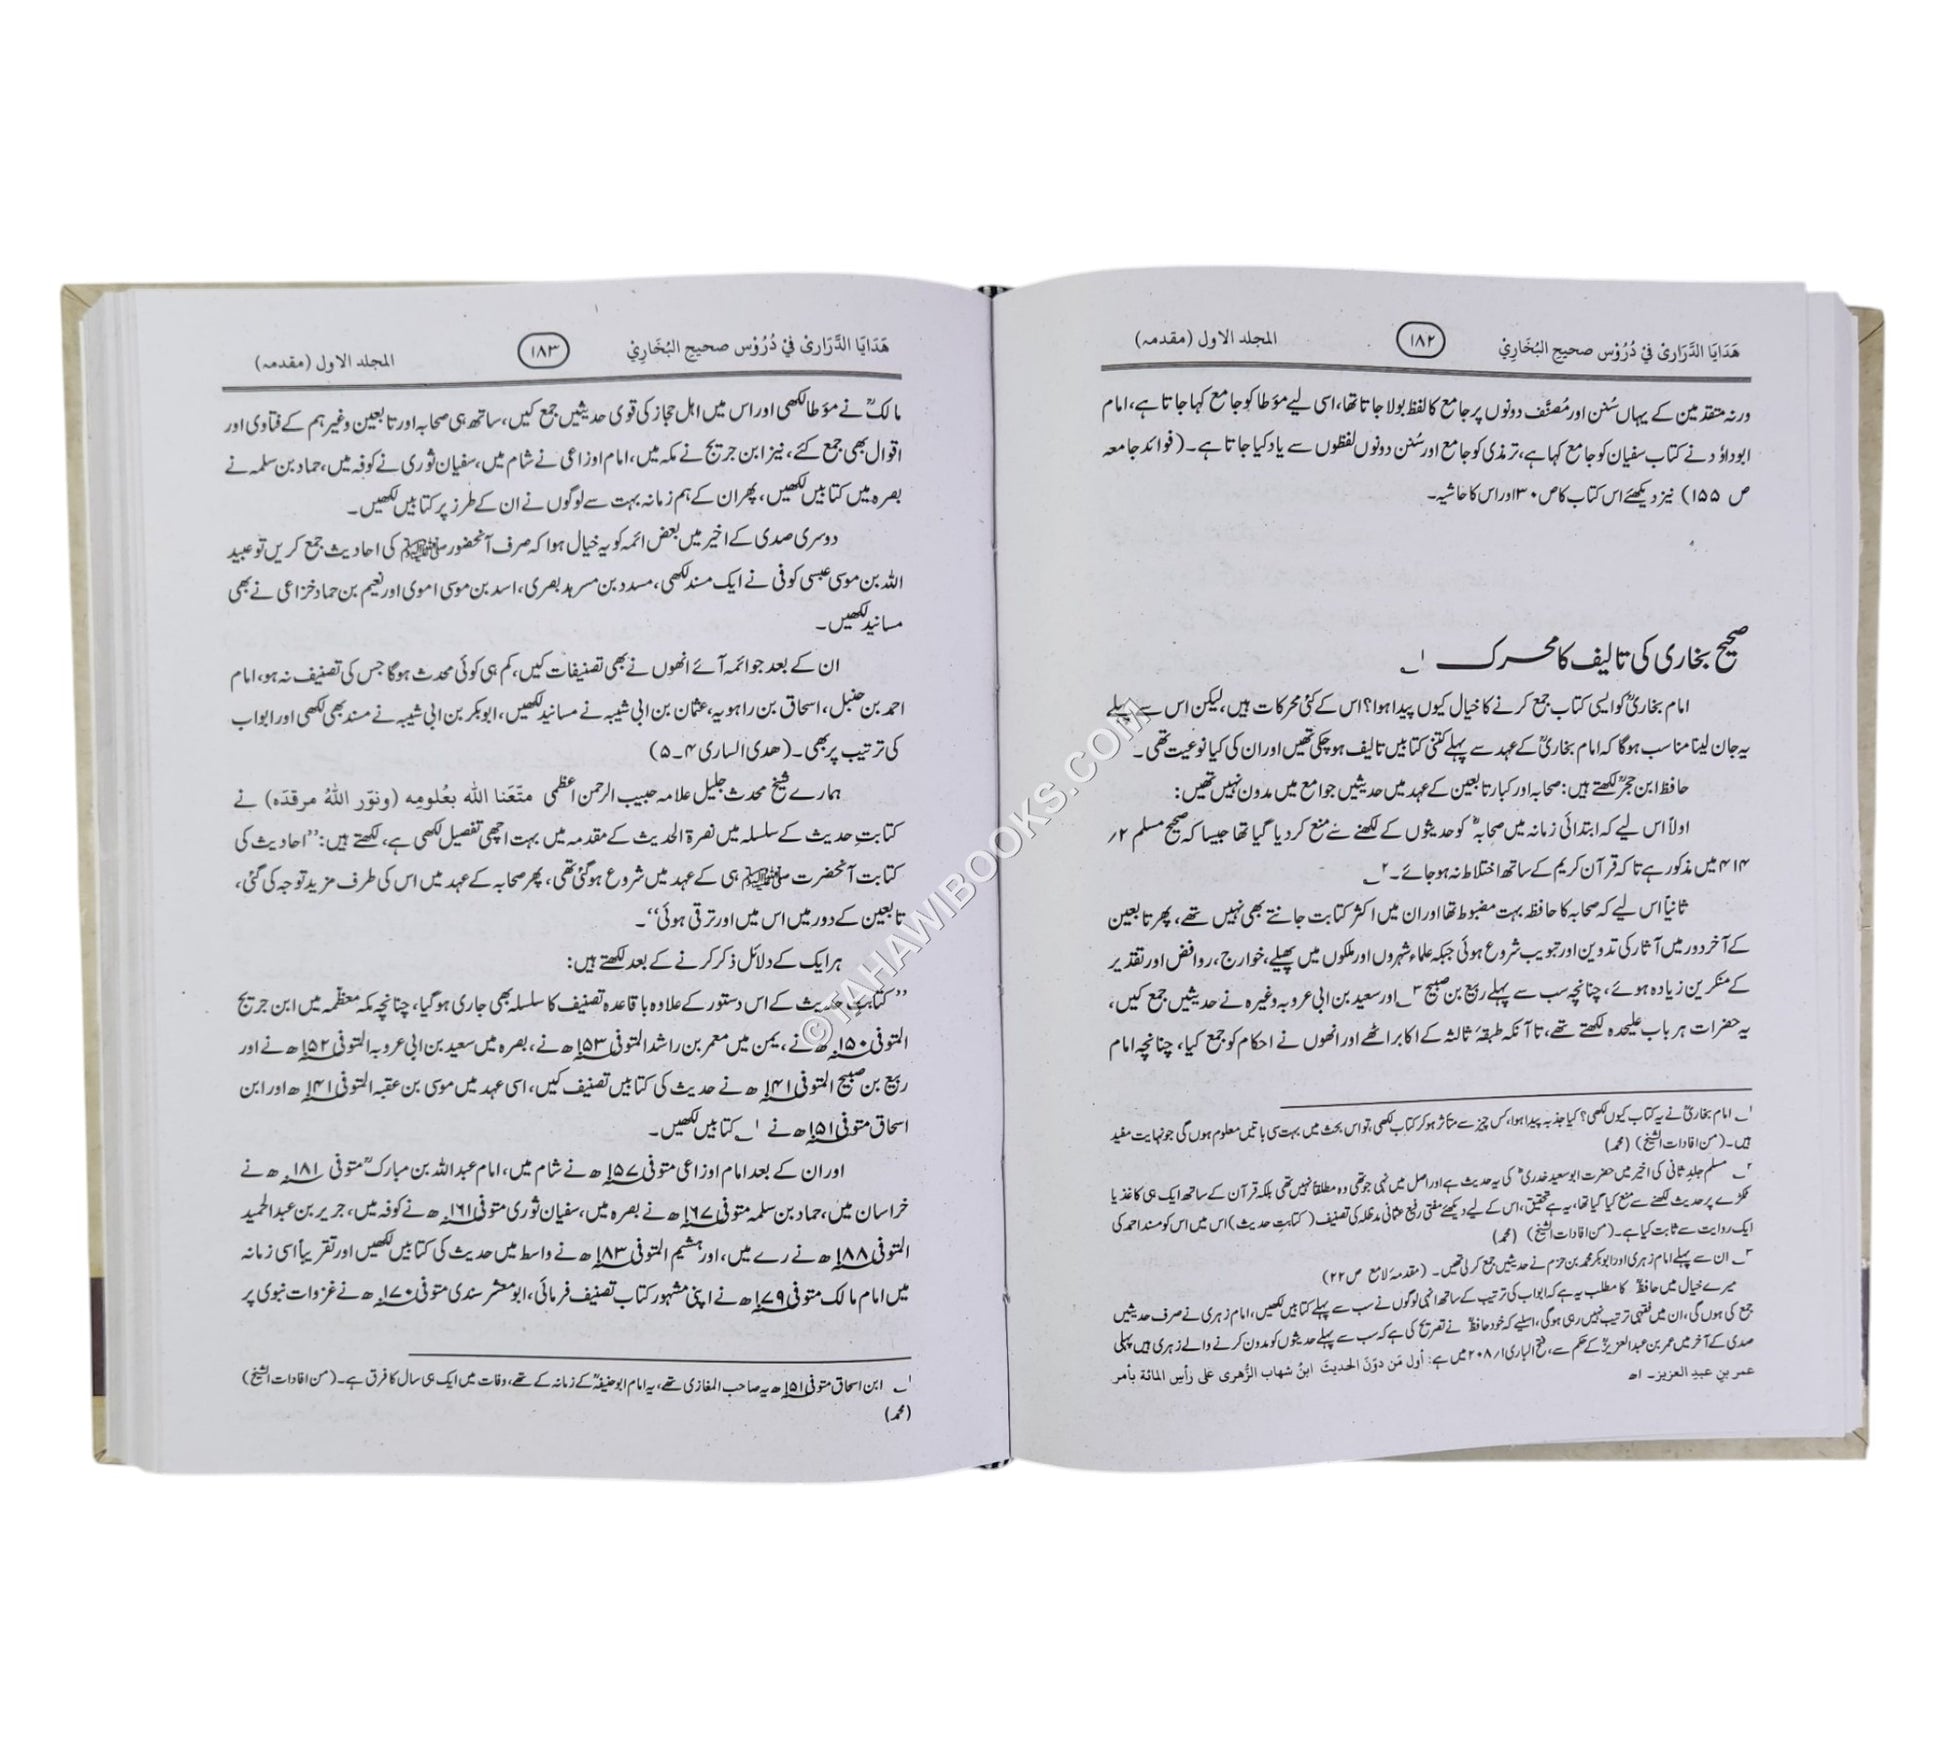 هَدَايَا الدَّرَارِيْ فِيْ دُرُوْس صحيح البُخَارِيْ
۱۸۲
المجلد الاول (مقدمہ)
ورنہ متقدمین کے یہاں سُنن اور مُصنَّف دونوں پر جامع کا لفظ بولا جاتا تھا، اسی لیے مؤطا کو جامع کہا جاتا ہے، امام
ابوداؤد نے کتاب سفیان کو جامع کہا ہے، ترمذی کو جامع اور سُنن دونوں لفظوں سے یاد کیا جاتا ہے۔ (فوائد جامعہ
ص ۱۵۵) نیز دیکھئے اس کتاب کا ص ۳۰ اور اس کا حاشیہ۔
صحیح بخاری کی تالیف کا محرک ۱؎
امام بخاریؒ کو ایسی کتاب جمع کرنے کا خیال کیوں پیدا ہوا؟ اس کے کئی محرکات ہیں، لیکن اس سے پہلے
یہ جان لینا مناسب ہوگا کہ امام بخاریؒ کے عہد سے پہلے کتنی کتابیں تالیف ہوچکی تھیں اور ان کی کیا نوعیت تھی۔
حافظ ابن حجرؒ لکھتے ہیں: صحابہ اور کبار تابعین کے عہد میں حدیثیں جوامع میں مدون نہیں تھیں:
اولاً اس لیے کہ ابتدائی زمانہ میں صحابہؓ کو حدیثوں کے لکھنے سے منع کردیا گیا تھا جیسا کہ صحیح مسلم ۲؍
۴۱۴ میں مذکور ہے تاکہ قرآن کریم کے ساتھ اختلاط نہ ہوجائے۔ ۲؎
ثانیاً اس لیے کہ صحابہ کا حافظہ بہت مضبوط تھا اور ان میں اکثر کتابت جانتے بھی نہیں تھے، پھر تابعین
کے آخر دور میں آثار کی تدوین اور تبویب شروع ہوئی جبکہ علماء شہروں اور ملکوں میں پھیلے، خوارج، روافض اور تقدیر
کے منکرین زیادہ ہوئے، چنانچہ سب سے پہلے ربیع بن صبیح ۳؎ اور سعید بن ابی عروبہ وغیرہ نے حدیثیں جمع کیں،
یہ حضرات ہر باب علیحدہ لکھتے تھے، تا آنکہ طبقۂ ثالثہ کے اکابر اٹھے اور انھوں نے احکام کو جمع کیا، چنانچہ امام
۱؎ امام بخاریؒ نے یہ کتاب کیوں لکھی؟ کیا جذبہ پیدا ہوا، کس چیز سے متأثر ہوکر کتاب لکھی، تو اس بحث میں بہت سی باتیں معلوم ہوں گی جو نہایت مفید
ہیں۔ (من افادات الشیخ) (محمد)
۲؎ مسلم جلد ثانی کی اخیر میں حضرت ابوسعید خدریؓ کی یہ حدیث ہے اور اصل میں نہی جو تھی وہ مطلقاً نہیں تھی بلکہ قرآن کے ساتھ ایک ہی کاغذ یا
ٹکڑے پر حدیث لکھنے سے منع کیا گیا تھا، یہ ہے تحقیق، اس کے لیے دیکھئے مفتی رفیع عثمانی مدظلہ کی تصنیف (کتابتِ حدیث) اس میں اس کو مسند احمد کی
ایک روایت سے ثابت کیا ہے۔ (من افادات الشیخ) (محمد)
۳؎ ان سے پہلے امام زہری اور ابوبکر محمد بن حزم نے حدیثیں جمع کرلی تھیں۔ (مقدمۂ لامع ص ۲۲)
میرے خیال میں حافظؒ کا مطلب یہ ہے کہ ابواب کی ترتیب کے ساتھ انہی لوگوں نے سب سے پہلے کتابیں لکھیں، امام زہری نے صرف حدیثیں
جمع کی ہوں گی، ان میں فقہی ترتیب نہیں رہی ہوگی، اسلیے کہ خود حافظؒ نے تصریح کی ہے کہ سب سے پہلے حدیثوں کو مدون کرنے والے زہری ہیں پہلی
صدی کے آخر میں عمر بن عبدالعزیزؒ کے حکم سے، فتح الباری ۱؍۲۰۸ میں ہے: أول مَن دوّنَ الحديثَ ابنُ شهاب الزُّهرى عَلى رأسِ المائة بأمر
عمر بنِ عبدِ العزيز۔ اھ
هَدَايَا الدَّرَارِيْ فِيْ دُرُوْس صحيح البُخَارِيْ
۱۸۳
المجلد الاول (مقدمہ)
مالکؒ نے مؤطا لکھی اور اس میں اہل حجاز کی قوی حدیثیں جمع کیں، ساتھ ہی صحابہ اور تابعین وغیرہم کے فتاوی اور
اقوال بھی جمع کئے، نیز ابن جریج نے مکہ میں، امام اوزاعی نے شام میں، سفیان ثوری نے کوفہ میں، حماد بن سلمہ نے
بصرہ میں کتابیں لکھیں، پھر ان کے ہم زمانہ بہت سے لوگوں نے ان کے طرز پر کتابیں لکھیں۔
دوسری صدی کے اخیر میں بعض ائمہ کو یہ خیال ہوا کہ صرف آنحضور ﷺ کی احادیث جمع کریں تو عبید
اللہ بن موسی عبسی کوفی نے ایک مسند لکھی، مسدد بن مسرہد بصری، اسد بن موسی اموی اور نعیم بن حماد خزاعی نے بھی
مسانید لکھیں۔
ان کے بعد جو ائمہ آئے انھوں نے بھی تصنیفات کیں، کم ہی کوئی محدث ہوگا جس کی تصنیف نہ ہو، امام
احمد بن حنبل، اسحاق بن راہویہ، عثمان بن ابی شیبہ نے مسانید لکھیں، ابوبکر بن ابی شیبہ نے مسند بھی لکھی اور ابواب
کی ترتیب پر بھی۔ (ھدی الساری ۴۔۵)
ہمارے شیخ محدث جلیل علامہ حبیب الرحمن اعظمی متّعَنا الله بعُلومِه (ونوّر اللهُ مرقدَه) نے
کتابتِ حدیث کے سلسلہ میں نصرۃ الحدیث کے مقدمہ میں بہت اچھی تفصیل لکھی ہے، لکھتے ہیں: ’’احادیث کی
کتابت آنحضرت ﷺ ہی کے عہد میں شروع ہوگئی تھی، پھر صحابہ کے عہد میں اس کی طرف مزید توجہ کی گئی،
تابعین کے دور میں اس میں اور ترقی ہوئی‘‘۔
ہر ایک کے دلائل ذکر کرنے کے بعد لکھتے ہیں:
’’کتابتِ حدیث کے اس دستور کے علاوہ باقاعدہ تصنیف کا سلسلہ بھی جاری ہوگیا، چنانچہ مکہ معظّمہ میں ابن جریج
المتوفی ۱۵۰ھ نے، یمن میں معمر بن راشد المتوفی ۱۵۳ھ نے، بصرہ میں سعید بن ابی عروبہ المتوفی ۱۵۲ھ نے اور
ربیع بن صبیح المتوفی ۱۴۱ھ نے حدیث کی کتابیں تصنیف کیں، اسی عہد میں موسی بن عقبہ المتوفی ۱۴۱ھ اور ابن
اسحاق متوفی ۱۵۱ھ نے ۱؎ کتابیں لکھیں۔
اور ان کے بعد امام اوزاعی متوفی ۱۵۷ھ نے شام میں، امام عبداللہ بن مبارکؒ متوفی ۱۸۱ھ نے
خراسان میں، حماد بن سلمہ متوفی ۱۶۷ھ نے بصرہ میں، سفیان ثوری متوفی ۱۶۱ھ نے کوفہ میں، جریر بن عبدالحمید
المتوفی ۱۸۸ھ نے رے میں، اور ہشیم المتوفی ۱۸۳ھ نے واسط میں حدیث کی کتابیں لکھیں اور تقریباً اسی زمانہ
میں امام مالک متوفی ۱۷۹ھ نے اپنی مشہور کتاب تصنیف فرمائی، ابومعشر سندی متوفی ۱۷۰ھ نے غزوات نبوی پر
۱؎ ابن اسحاق متوفی ۱۵۱ھ یہ صاحب المغازی تھے، یہ امام ابوحنیفہؒ کے زمانہ کے تھے، وفات میں ایک ہی سال کا فرق ہے۔ (من افادات الشیخ)
(محمد)
©TAHAWIBOOKS.COM